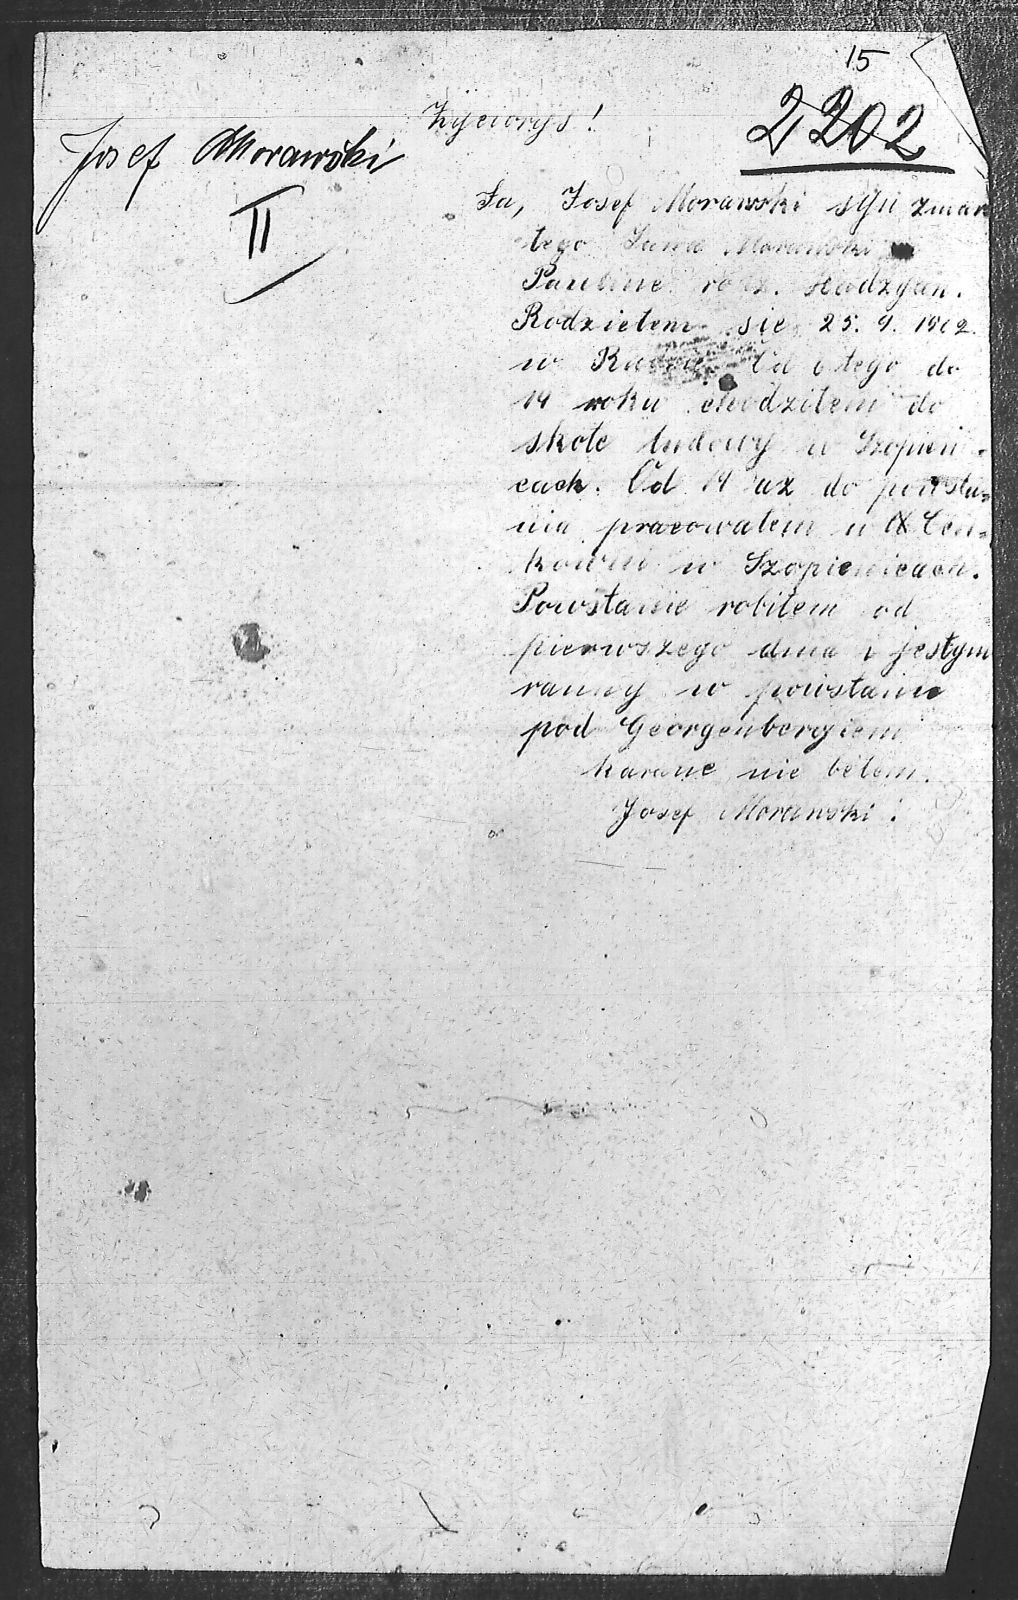 15
2202
Życiorys!
Josef Morawski
II
Ja, Josef Morawski syn zmar
tego Jana Morawski
Pauline rodz.
Rodziełem się 25. 9. 1902.
w Od 6 tego do
14 roku chodziłem do
skołe ludowy w Szopieni-
cach. Od 14 aż do powsta-
nia pracowałem w Cen-
kowni w Szopienicach.
Powstanie robiłem od
pierwszego dnia i jestym
ranny w powstanie
pod Georgenbergiem
karane nie bełem.
Josef Morawski!